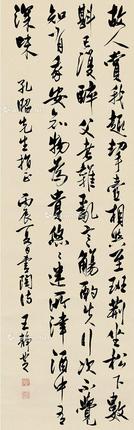 故人賞我趣挈壺相與至班荊坐松下數
斟已復醉父老雜亂言觴酌失行次不覺
知有我安知物為貴悠悠迷所留酒中有
深味 孔昭先生指正 丙辰夏日書陶詩 王靜芝